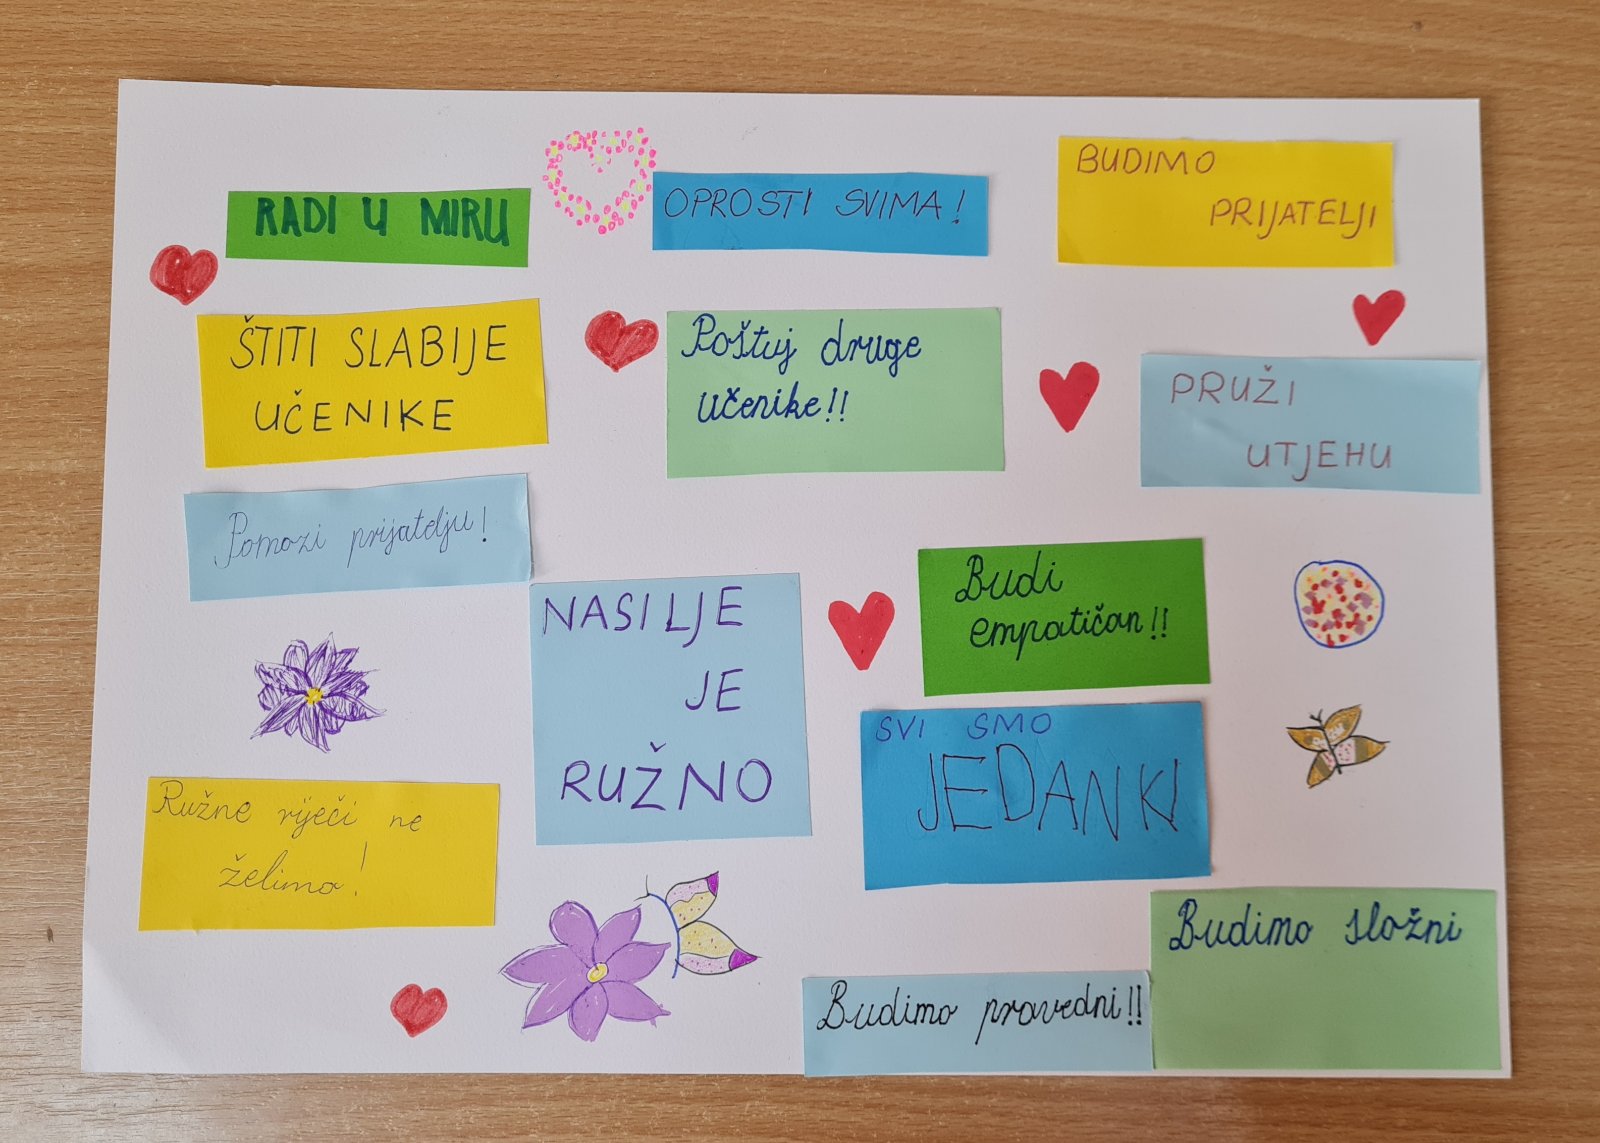 RADI U MIRU
OPROSTI SVIMA!
BUDIMO
PRIJATELJI
ŠTITI SLABIJE
UČENIKE
Poštuj druge
učenike!!
PRUŽI
UTJEHU
Pomozi prijatelju!
NASILJE
JE
RUŽNO
Budi
empatičan!!
SVI SMO
JEDANKI
Ružne riječi ne
želimo!
Budimo složni
Budimo pravedni!!